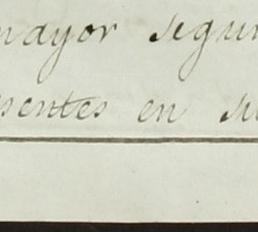 mayor segun
sentes en su